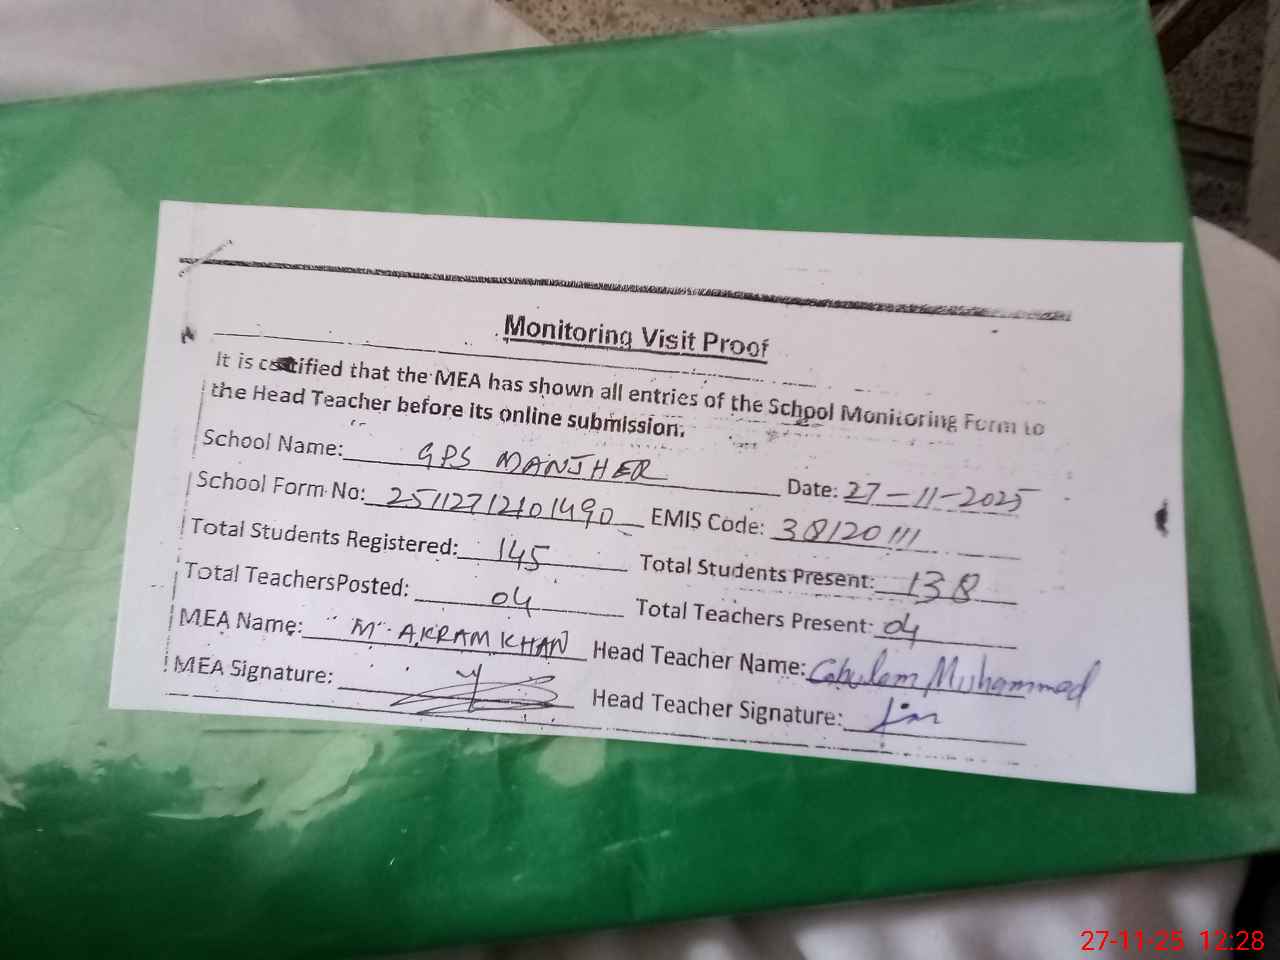 Monitoring Visit Proof
It is certified that the MEA has shown all entries of the School Monitoring Form to
the Head Teacher before its online submission.
School Name: GPS MANJHER Date: 27-11-2025
School Form No: 25112712101490 EMIS Code: 38120111
Total Students Registered: 145 Total Students Present: 138
Total TeachersPosted: 04 Total Teachers Present: 04
MEA Name: M. AKRAM KHAN Head Teacher Name: Ghulam Muhammad
MEA Signature: Head Teacher Signature:
27-11-25 12:28